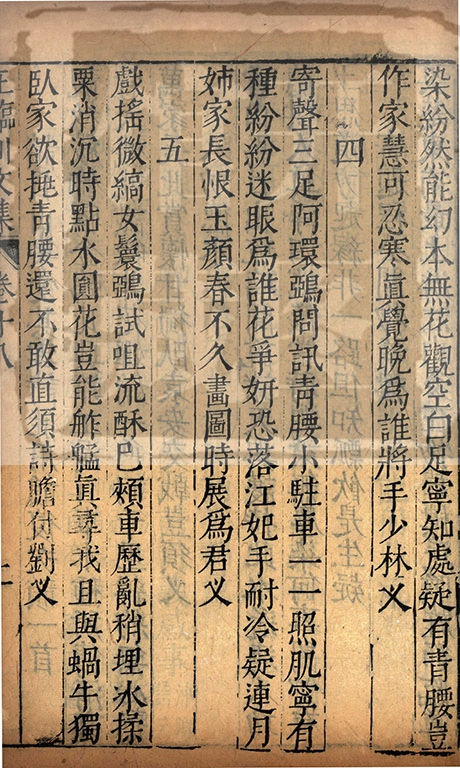 染紛然能幻本無花觀空白足寧知處疑有青腰豈
作家慧可忍寒真覺晚為誰將手少林义
四
寄聲三足阿環鵶問訊青腰小駐車一一照肌寧有
種紛紛迷眼為誰花爭妍恐落江妃手耐冷疑連月
姊家長恨玉顏春不久畫圖時展為君义
五
戲搖微縞女鬟鵶試咀流酥已頰車歷亂稍埋冰揉
粟消沉時點水圓花豈能舴艋真尋我且與蝸牛獨
臥家欲挑青腰還不敢直須詩膽付劉义
王臨川文集 卷十八